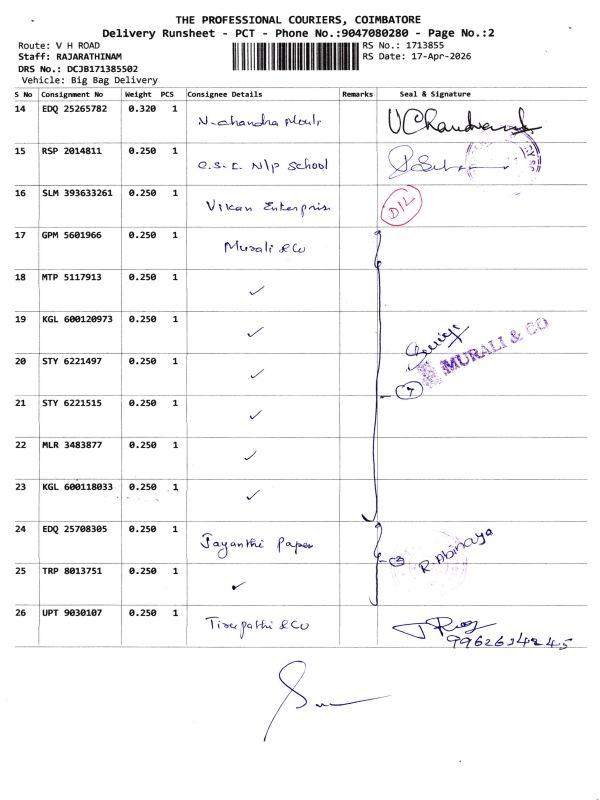 THE PROFESSIONAL COURIERS, COIMBATORE
Delivery Runsheet - PCT - Phone No.:9047080280 - Page No.:2
Route: V H ROAD
RS No.: 1713855
Staff: RAJARATHINAM
RS Date: 17-Apr-2026
DRS No.: DCJB171385502
Vehicle: Big Bag Delivery
S No Consignment No Weight PCS Consignee Details Remarks Seal & Signature
14 EDQ 25265782 0.320 1 N-chandra Mouli
15 RSP 2014811 0.250 1 C.S.I. N/P School
16 SLM 393633261 0.250 1 Vikan Enterpris DIL
17 GPM 5601966 0.250 1 Murali &Co
18 MTP 5117913 0.250 1 ✓
19 KGL 600120973 0.250 1 ✓
MURALI & CO
20 STY 6221497 0.250 1 ✓
7
21 STY 6221515 0.250 1 ✓
22 MLR 3483877 0.250 1 ✓
23 KGL 600118033 0.250 1 ✓
24 EDQ 25708305 0.250 1 Jayanthi Paper R. Abinaya
25 TRP 8013751 0.250 1 ✓
26 UPT 9030107 0.250 1 Tirupathi &Co
9962634245